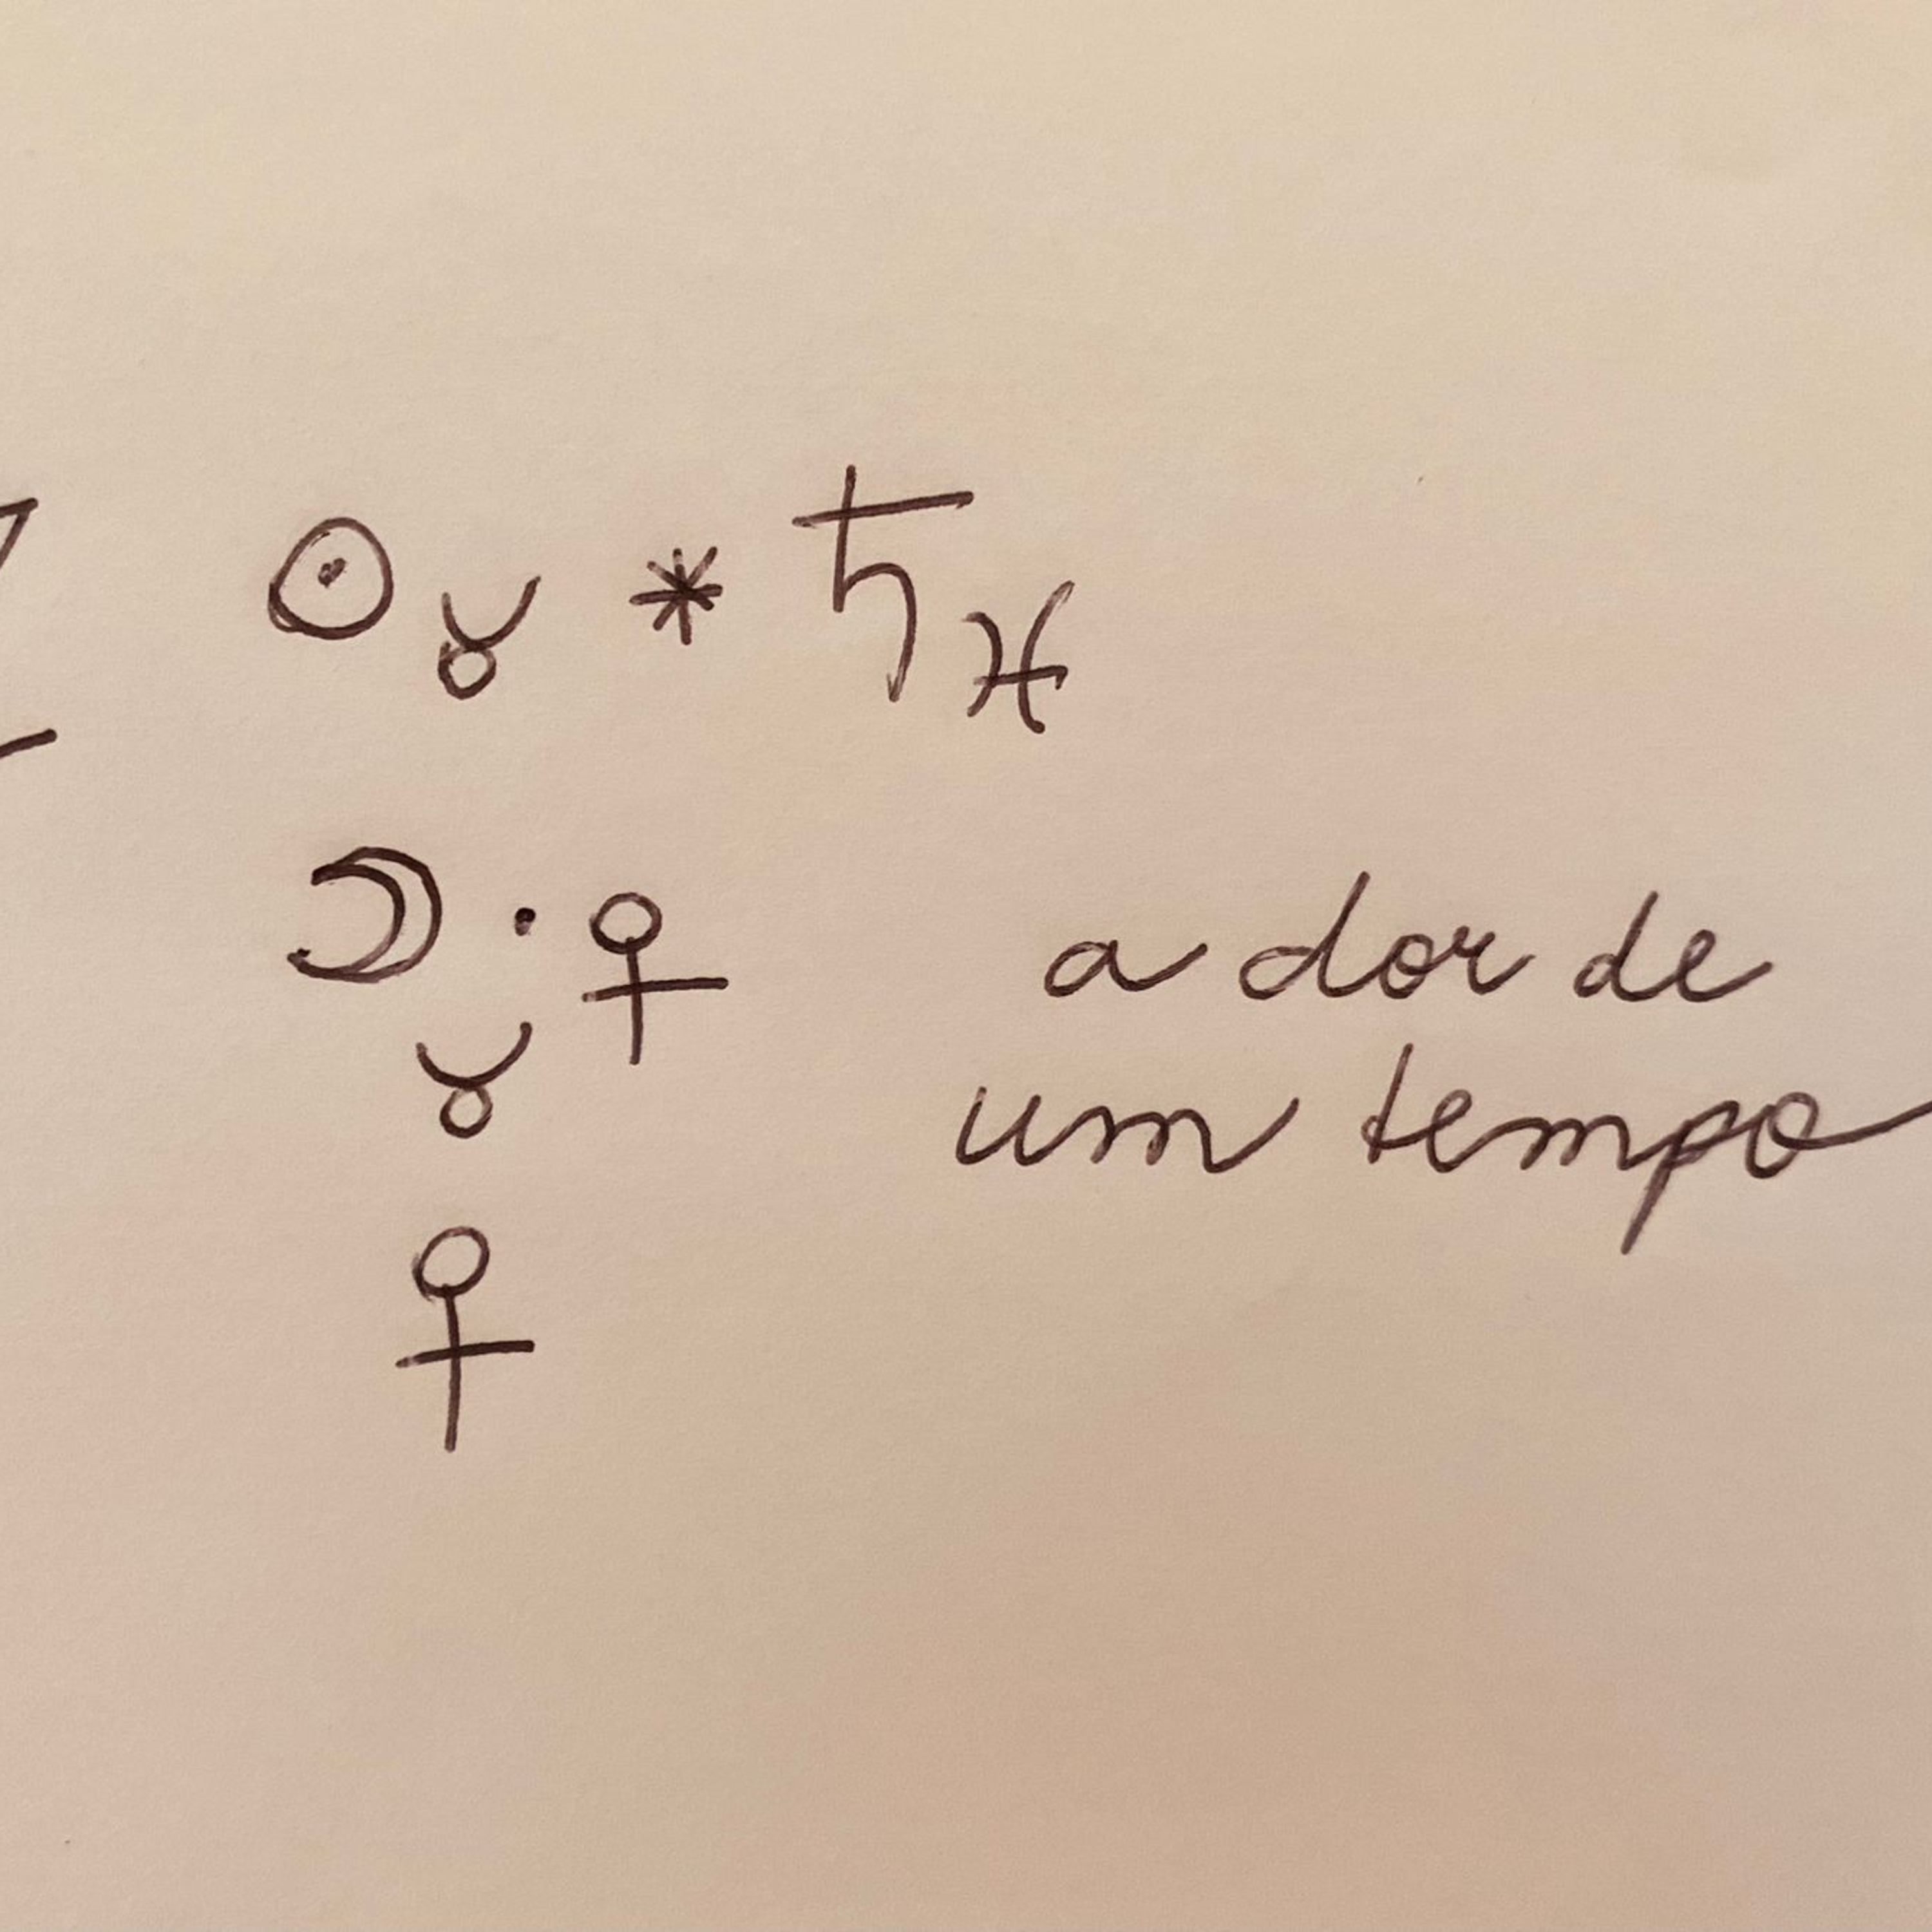 ☉ ♉ * ♄ ♓
☽ · ♀
♉
a dor de
um tempo
♀